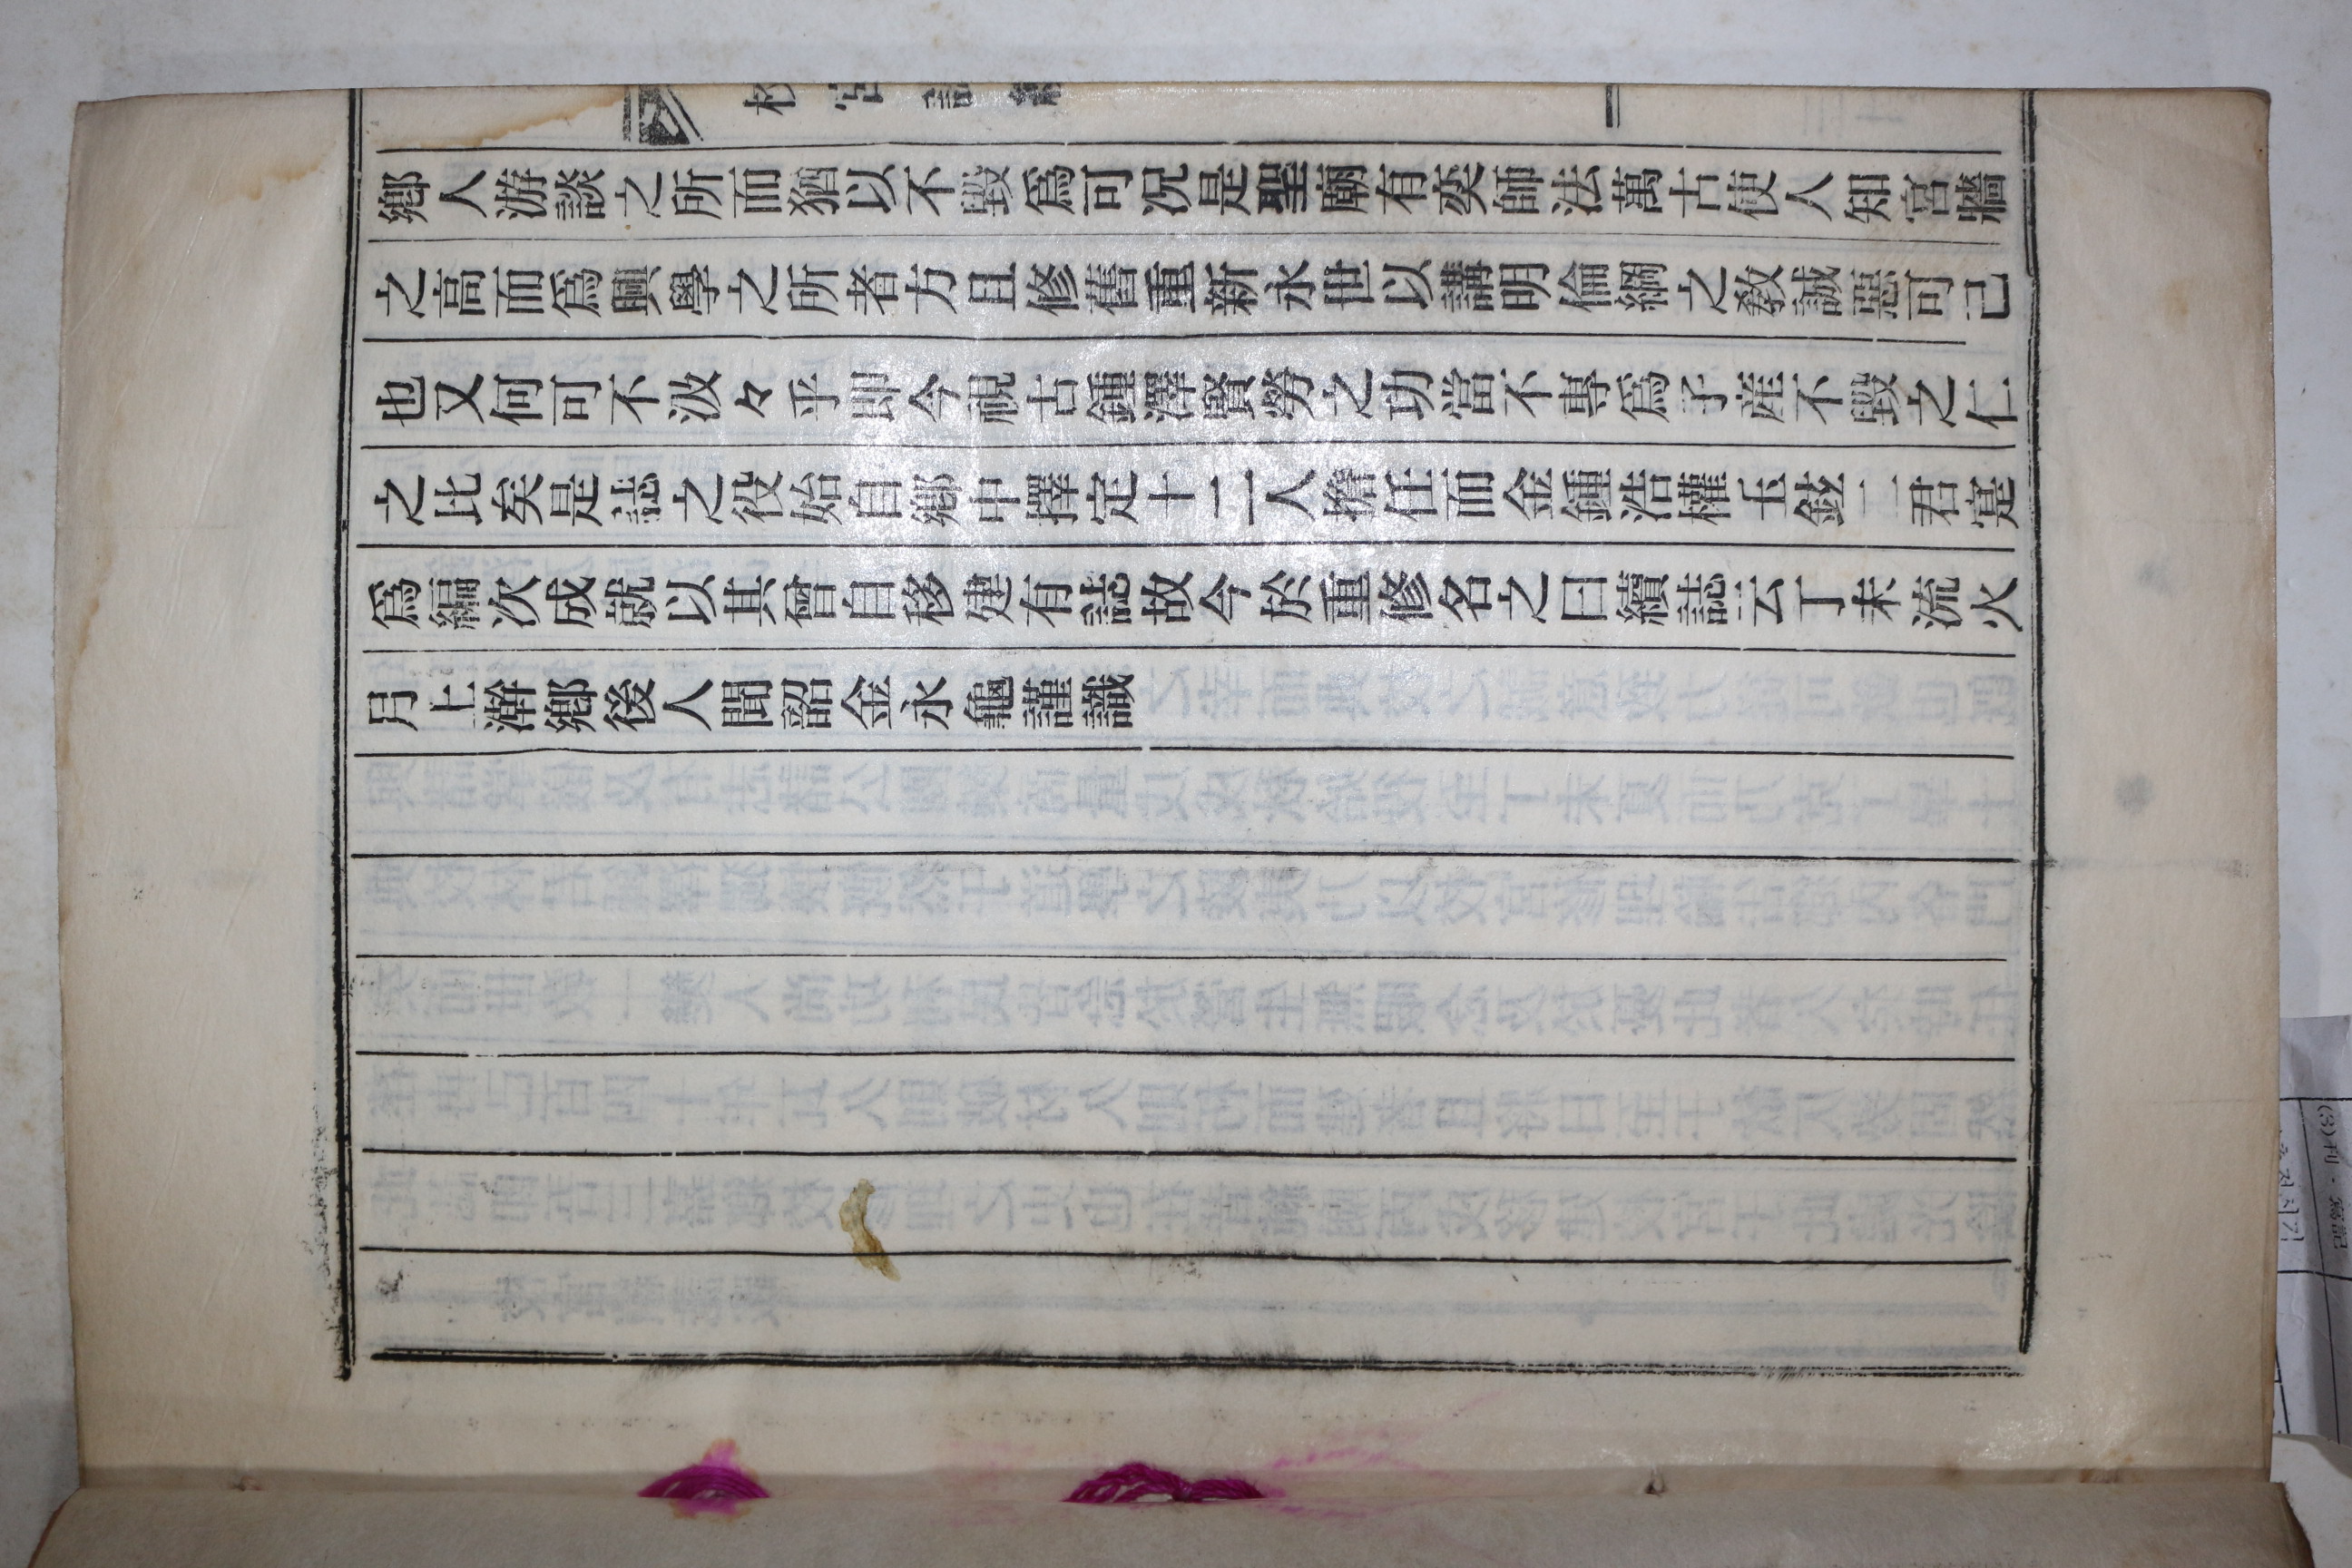 鄕人游談之所而猶以不毀爲可况是聖廟有奕師法萬古使人知宮牆
之高而爲興學之所者方且修舊重新永世以講明倫綱之敎誠惡可己
也又何可不汲々乎即今視古鍾澤賢勞之功當不專爲子産不毀之仁
之比矣是誌之役始自鄕中擇定十二人擔任而金鍾浩權玉鉉二君寔
爲編次成就以其曾自移建有誌故今於重修名之曰續誌云丁未流火
月上澣鄕後人聞韶金永龜謹識
校宮誌
一